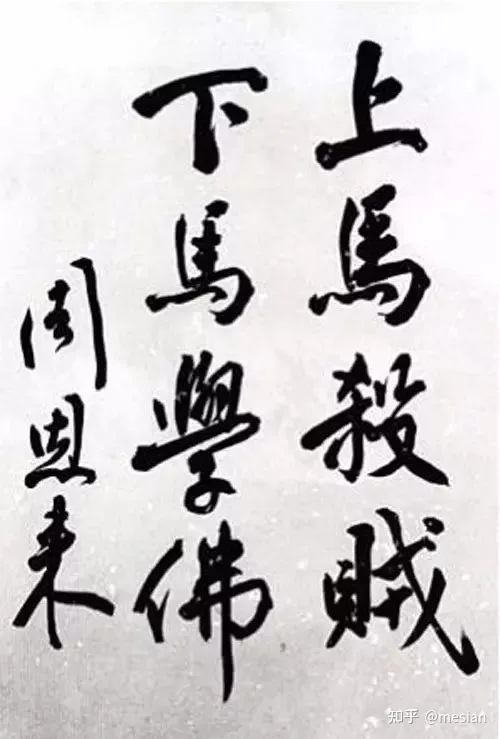 上馬殺賊
下馬學佛
周恩来
知乎 @mesian